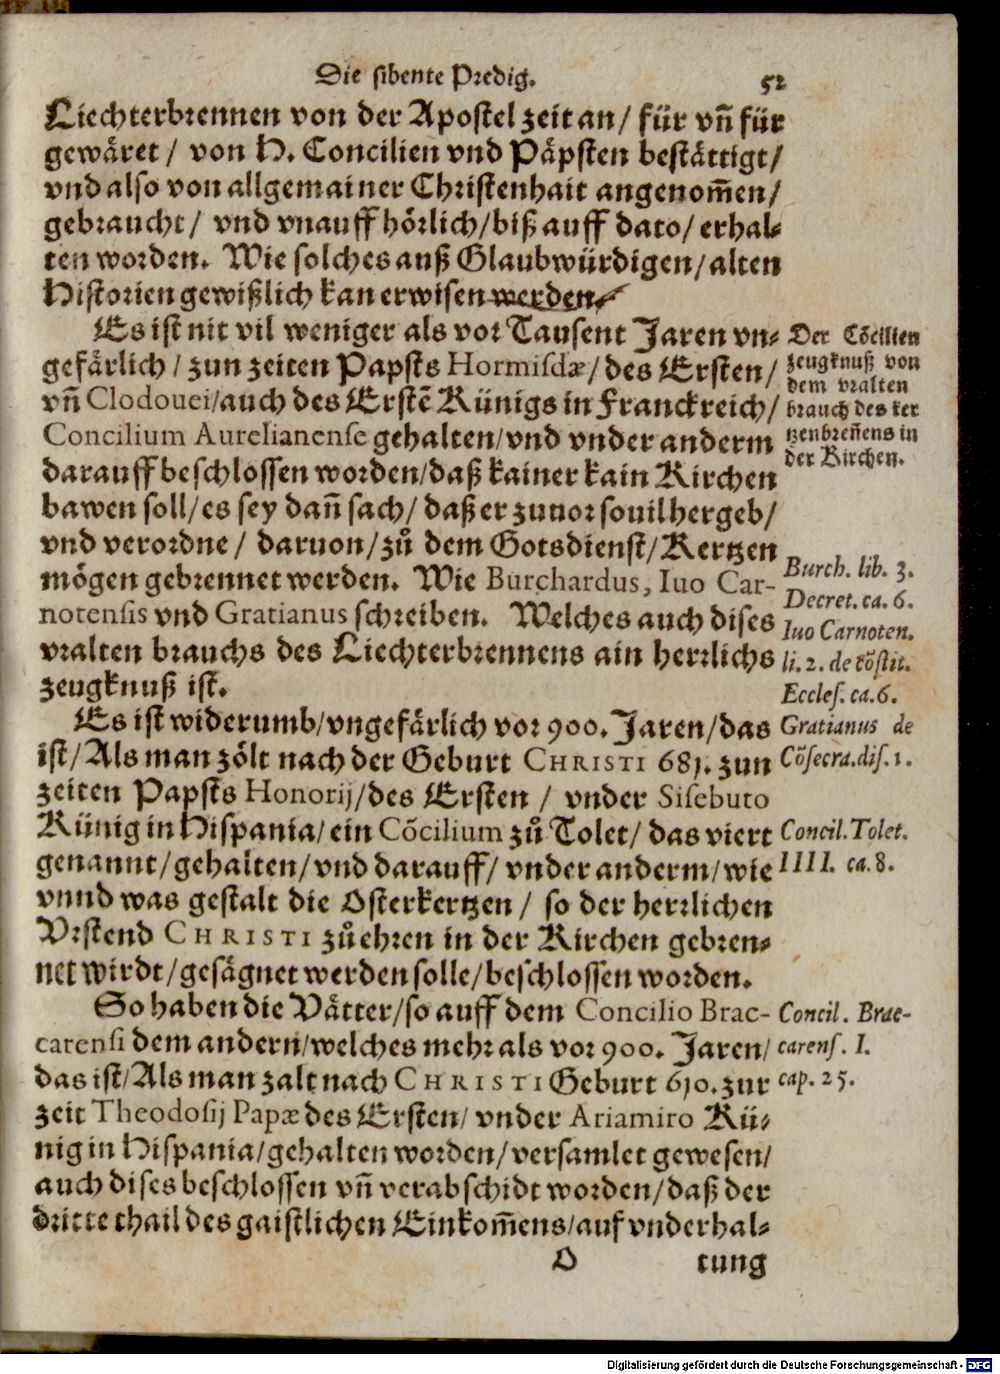 Die sibente Predig. 52
Liechterbrennen von der Apostel zeit an/ für vñ für
gewäret/ von H. Concilien vnd Päpsten bestättigt/
vnd also von allgemainer Christenhait angenom̃en/
gebraucht/ vnd vnauffhörlich/biß auff dato/ erhal-
ten worden. Wie solches auß Glaubwürdigen/alten
Historien gewißlich kan erwisen werden.
Es ist nit vil weniger als vor Tausent Jaren vn-
gefärlich/ zun zeiten Papsts Hormisdæ/des Ersten/
vñ Clodouei/auch des Erstẽ Künigs in Franckreich/
Concilium Aurelianense gehalten/vnd vnder anderm
darauff beschlossen worden/daß kainer kain Kirchen
bawen soll/es sey dañ sach/ daß er zuuor souil hergeb/
vnd verordne/ daruon/zů dem Gotsdienst/Kertzen
mögen gebrennet werden. Wie Burchardus, Iuo Car-
notensis vnd Gratianus schreiben. Welches auch dises
vralten brauchs des Liechterbrennens ain herrlichs
zeugknuß ist.
Es ist widerumb/vngefärlich vor 900. Jaren/das
ist/Als man zölt nach der Geburt CHRISTI 681. zun
zeiten Papsts Honorij/des Ersten/ vnder Sisebuto
Künig in Hispania/ein Cõcilium zů Tolet/ das viert
genannt/gehalten/vnd darauff/ vnder anderm/wie
vnnd was gestalt die Osterkertzen/ so der herrlichen
Vrstend CHRISTI zů ehren in der Kirchen gebren-
net wirdt/gesägnet werden solle/beschlossen worden.
So haben die Vätter/so auff dem Concilio Brac-
carensi dem andern/welches mehr als vor 900. Jaren/
das ist/Als man zalt nach CHRISTI Geburt 610. zur
zeit Theodosij Papæ des Ersten/ vnder Ariamiro Kü-
nig in Hispania/gehalten worden/versamlet gewesen/
auch dises beschlossen vñ verabschidt worden/daß der
dritte thail des gaistlichen Einkom̃ens/auf vnderhal-
O tung
Der Cõcilien
zeugknuß von
dem vralten
brauch des ker
tzenbreñens in
der Kirchen.
Burch. lib. 3.
Decret. ca. 6.
Iuo Carnoten.
li. 2. de cõstit.
Eccles. ca. 6.
Gratianus de
Cõsecra. dis. 1.
Concil. Tolet.
IIII. ca. 8.
Concil. Brac-
carens. I.
cap. 25.
Digitalisierung gefördert durch die Deutsche Forschungsgemeinschaft - DFG